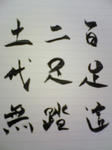 百足造
二足踏
土代無